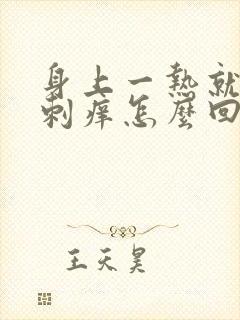 身上一熱就
刺癢怎麼回
王天昊